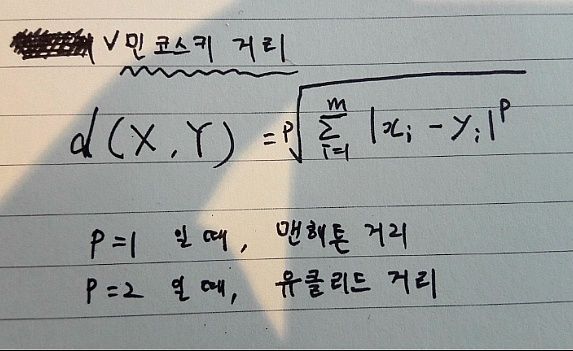 ∨ 민코스키 거리
d(X, Y) = ᵖ√(∑_{i=1}^{m} |xᵢ - yᵢ|ᵖ)
P=1 일 때, 맨해튼 거리
P=2 일 때, 유클리드 거리